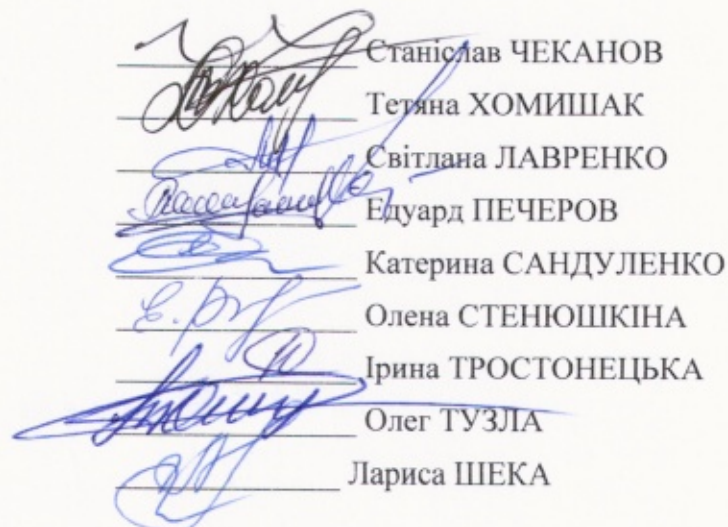 Станіслав ЧЕКАНОВ
Тетяна ХОМИШАК
Світлана ЛАВРЕНКО
Едуард ПЕЧЕРОВ
Катерина САНДУЛЕНКО
Олена СТЕНЮШКІНА
Ірина ТРОСТОНЕЦЬКА
Олег ТУЗЛА
Лариса ШЕКА